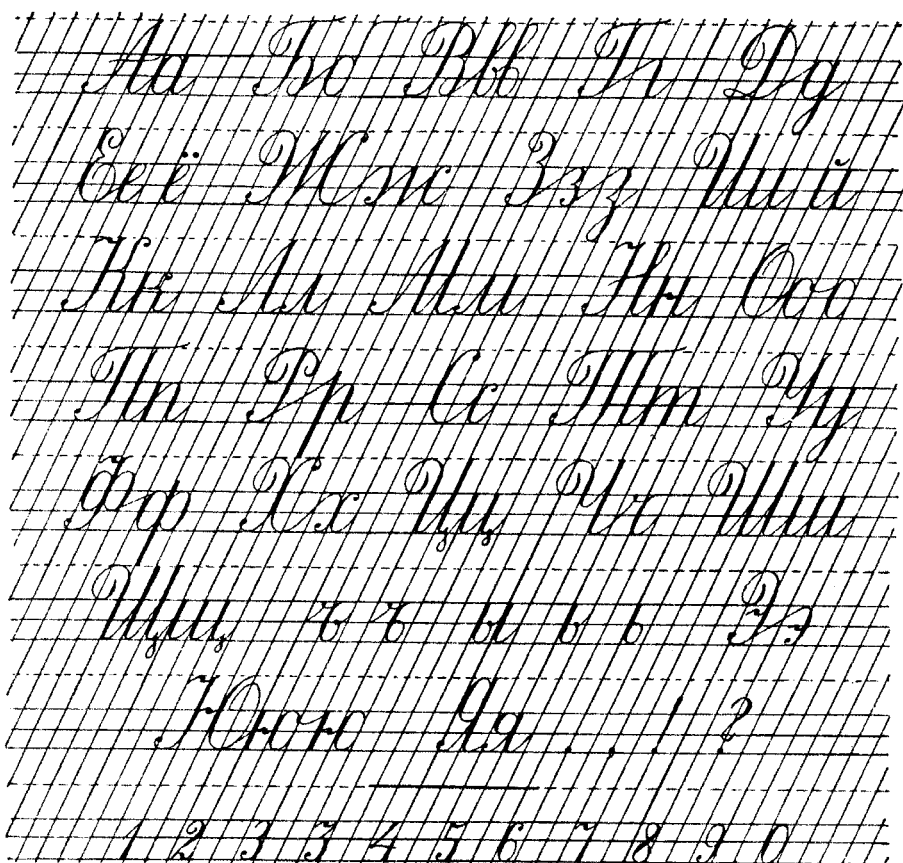 Аа Бб Ввв Гг Дд
Ееё Жж Ззз Ии й
Кк Лл Мм Нн Ооо
Пп Рр Сс Тт Уу
Фф Хх Цц Чч Шш
Щщ ъ ъ ы ь ь Ээ
Ююю Яя . , ! ?
1 2 3 3 4 5 6 7 8 9 0